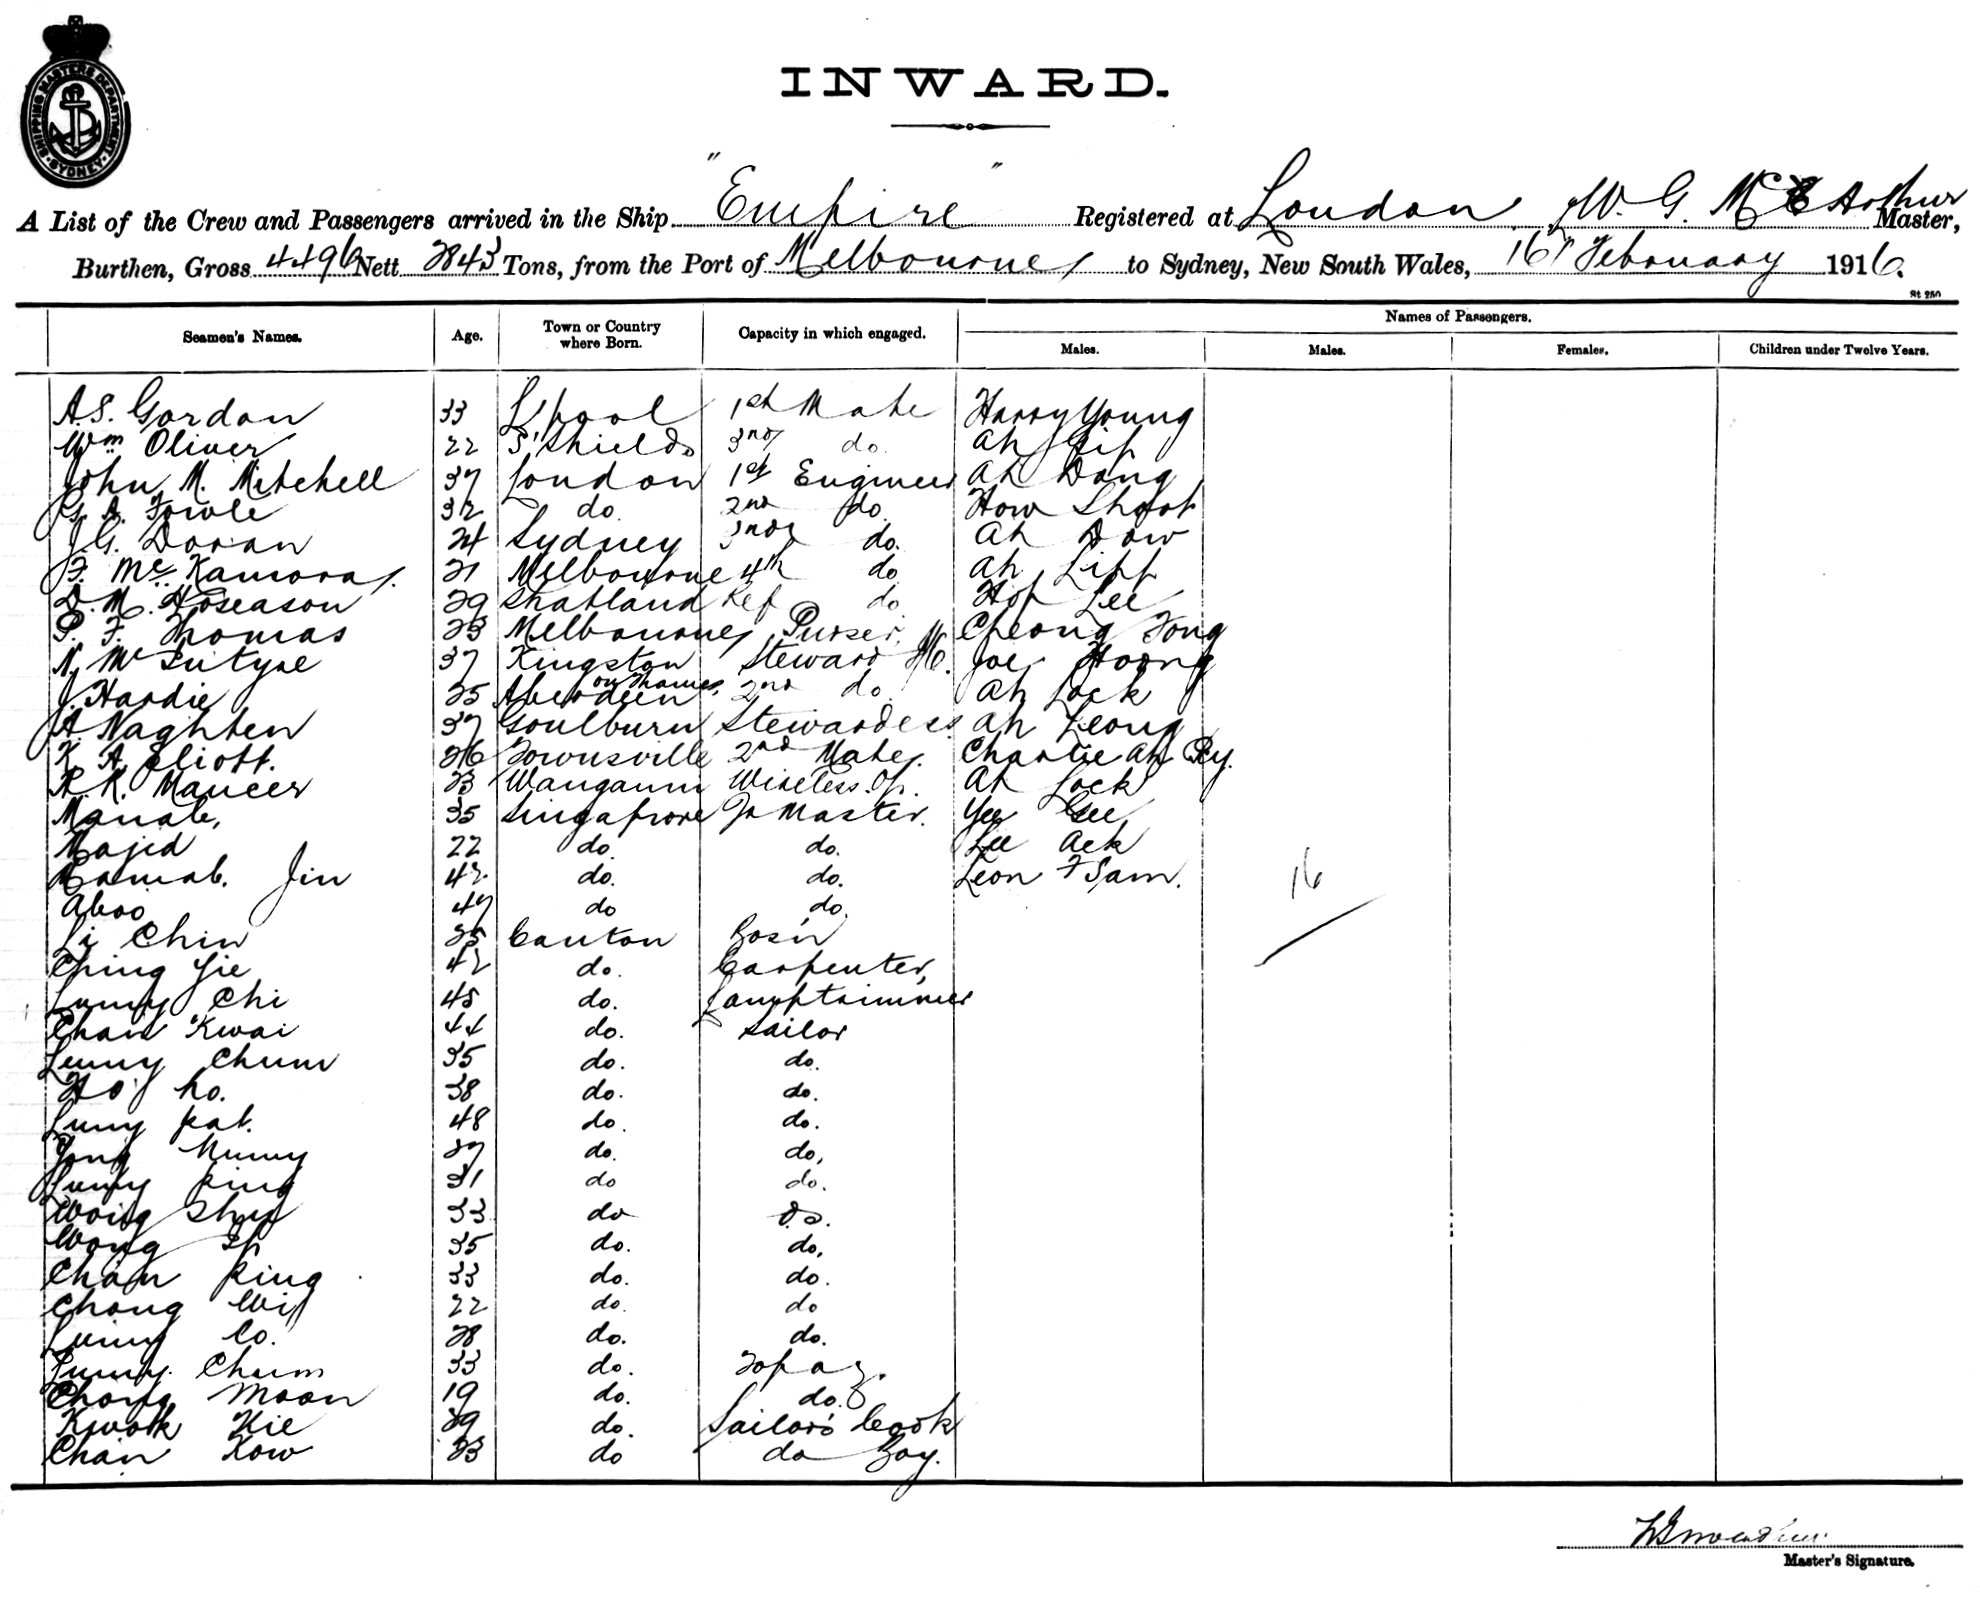 SHIPPING MASTERS DEPARTMENT · SYDNEY ·
INWARD.
A List of the Crew and Passengers arrived in the Ship "Empire" Registered at London, W. G. McArthur Master,
Burthen, Gross 4496 Nett 2843 Tons, from the Port of Melbourne to Sydney, New South Wales, 16 February 1916.
St 250
Seamen's Names. Age. Town or Country where Born. Capacity in which engaged. Names of Passengers.
Males. Males. Females. Children under Twelve Years.
A. S. Gordon 33 L'pool 1st Mate Harry Young
Wm Oliver 22 S' Shields 3rd do. Ah
John M. Mitchell 37 London 1st Engineer Ah Dong
Fowle 32 do. 2nd do. How
J. G. Doran 24 Sydney 3rd do. Ah Dow
F. Mc 21 Melbourne 4th do Ah Lipp
D. M. Hoseason 29 Shatland Ref do Hop Lee
P. F. Thomas 23 Melbourne Purser. Cheong Fong
N. McIntyre 37 Kingston on Thames Steward Joe Hoong
J. Hardie 25 Aberdeen 2nd do Ah Lock
A. Naghten 37 Goulburn Stewardess Ah Leong
K. A. Eliott. 26 Townsville 2nd Mate. Charlie Ah
R. R. 23 Wanganui Wireless Op. Ah Lock
35 Singapore Qr Master. Yee Gee
Majid 22 do. do. Lee Ack
Jin 42 do. do. Leon Sam. 16
Aboo 47 do do.
Li Chin 25 Canton Bos'n
Ching Yie 42 do. Carpenter,
Lumy Chi 45 do. Lamptrimmer
Chan Kwai 44 do. Sailor
Lumy Chum 35 do. do.
Ho Ko. 38 do. do.
Lumy Kat. 48 do. do.
27 do. do,
King 31 do do.
Wong 33 do do.
Wong 35 do. do,
Chan King 33 do. do.
Chong 22 do. do
Co. 28 do. do.
Chum 33 do. Topaz.
Chong Moon 19 do. do.
Kwok Kie 29 do. Sailors Cook
Chan Kow 23 do do Boy.
Master's Signature.